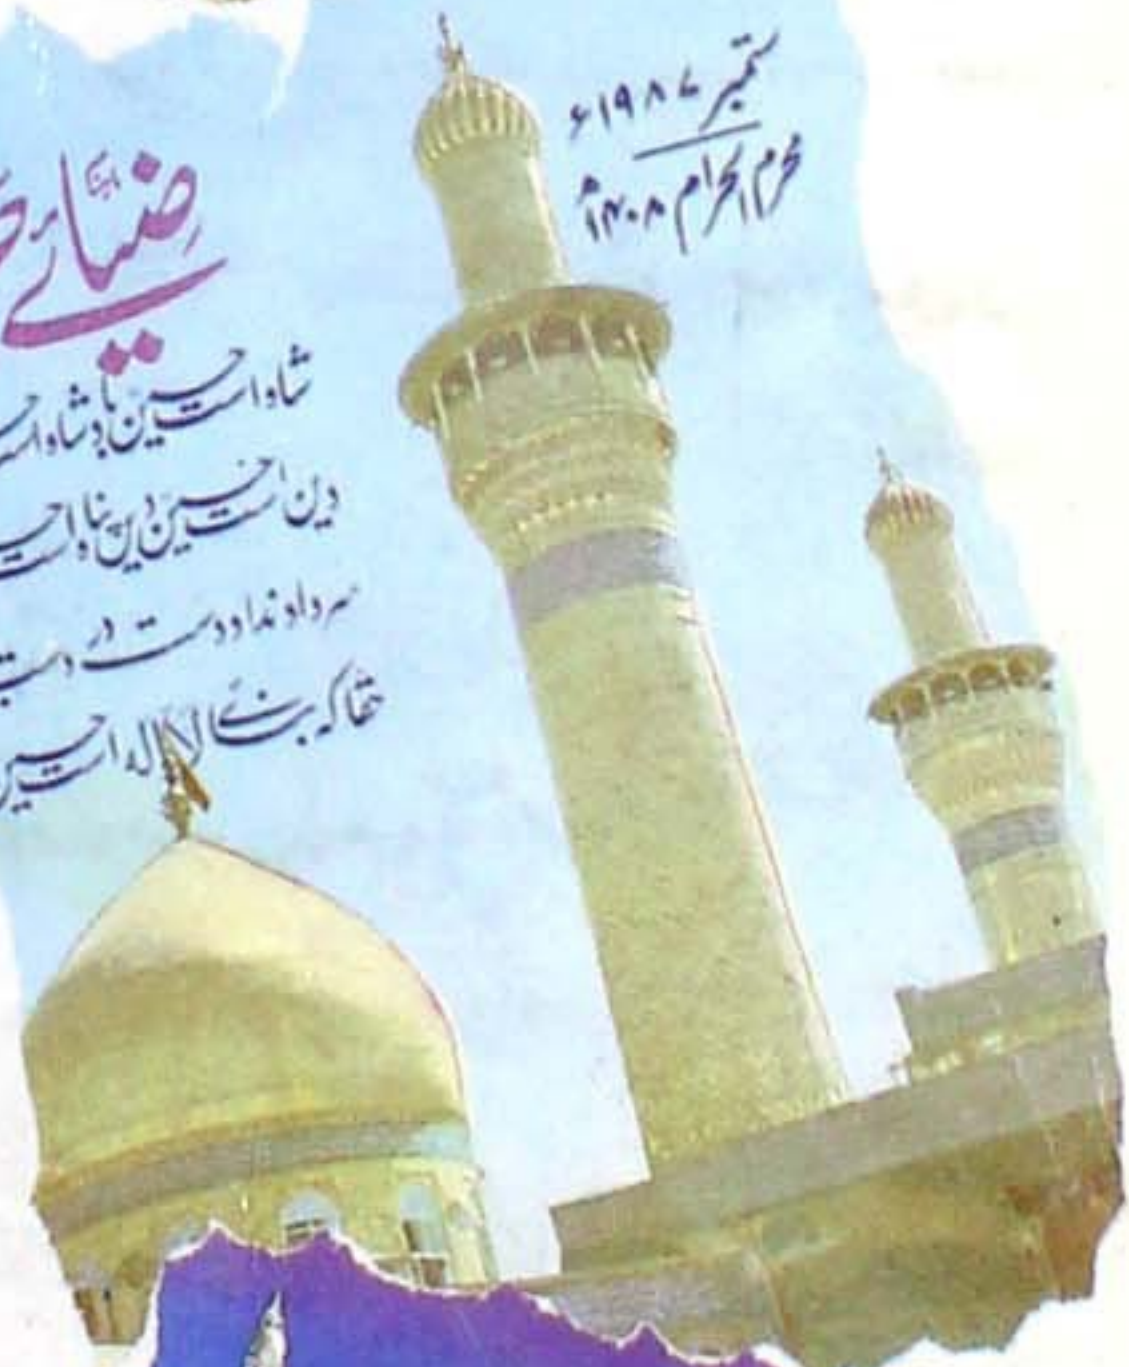 ستمبر ۱۹۸۷ء
محرم الحرام ۱۴۰۸ھ
ماہنامہ
ضیائے
شاہ است حسین بادشاہ است
دین است حسین دین پناہ است
سرداد نداد دست در دست
حقا کہ بنائے لا الہ است حسین